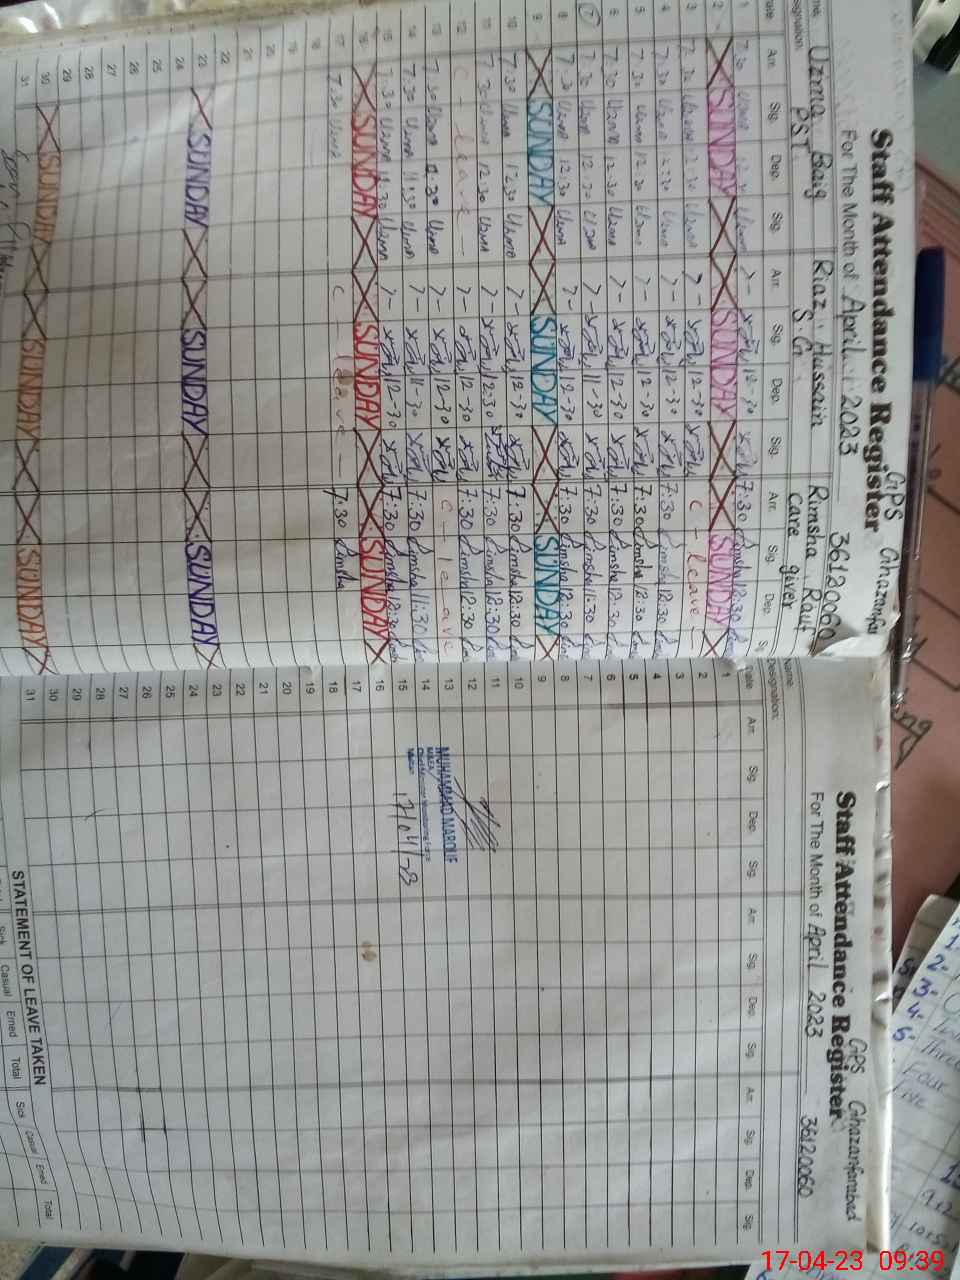 Staff Attendance Register
GPS Ghazanfar
For The Month of April 2023
36120060
Name: Uzma Baig Riaz Hussain Rimsha Rauf
Designation: PST S.G care giver
Date Arr. Sig. Dep. Sig. Arr. Sig. Dep. Sig. Arr. Sig. Dep.
1 7:30 Uzma 12:30 Uzma 7- 12-30 7:30 Rimsha 12:30
2 SUNDAY SUNDAY SUNDAY
3 7:30 Uzma 12:30 Uzma 7- 12-30 C - leave -
4 7:30 Uzma 12:30 Uzma 7- 12-30 7:30 Rimsha 12:30
5 7:30 Uzma 12:30 Uzma 7- 12-30 7:30 Rimsha 12:30
6 7:30 Uzma 12:30 Uzma 7- 12-30 7:30 Rimsha 12:30
7 7:30 Uzma 12:30 Uzma 7- 11-30 7:30 Rimsha 11:30
8 7:30 Uzma 12:30 Uzma 7- 12-30 7:30 Rimsha 12:30
9 SUNDAY SUNDAY SUNDAY
10 7:30 Uzma 12:30 Uzma 7- 12-30 7:30 Rimsha 12:30
11 7:30 Uzma 12:30 Uzma 7- 12:30 7:30 Rimsha 12:30
12 C - leave - 7- 12-30 7:30 Rimsha 12:30
13 7:30 Uzma 12:30 Uzma 7- 12-30 C - leave
14 7:30 Uzma 11:30 Uzma 7- 11-30 7:30 Rimsha 11:30
15 7:30 Uzma 12:30 Uzma 7- 12-30 7:30 Rimsha 12:30
16 SUNDAY SUNDAY SUNDAY
17 7:30 Uzma C - leave - 7:30 Rimsha
18
19
20
21
22
23 SUNDAY SUNDAY SUNDAY
24
25
26
27
28
29
30 SUNDAY SUNDAY SUNDAY
31
Staff Attendance Register
GPS Ghazanfarabad
For The Month of April 2023
36120060
Name
Designation:
Date Arr. Sig. Dep. Sig. Arr. Sig. Dep. Sig. Arr. Sig. Dep. Sig.
1
2
3
4
5
6
7
8
9
10
11
12
13
14
15
16
17
18
19
20
21
22
23
24
25
26
27
28
29
30
31
MUHAMMAD MAROUF
MEA
17/04/23
STATEMENT OF LEAVE TAKEN
Sick Casual Erned Total Sick Casual Erned Total
17-04-23 09:39